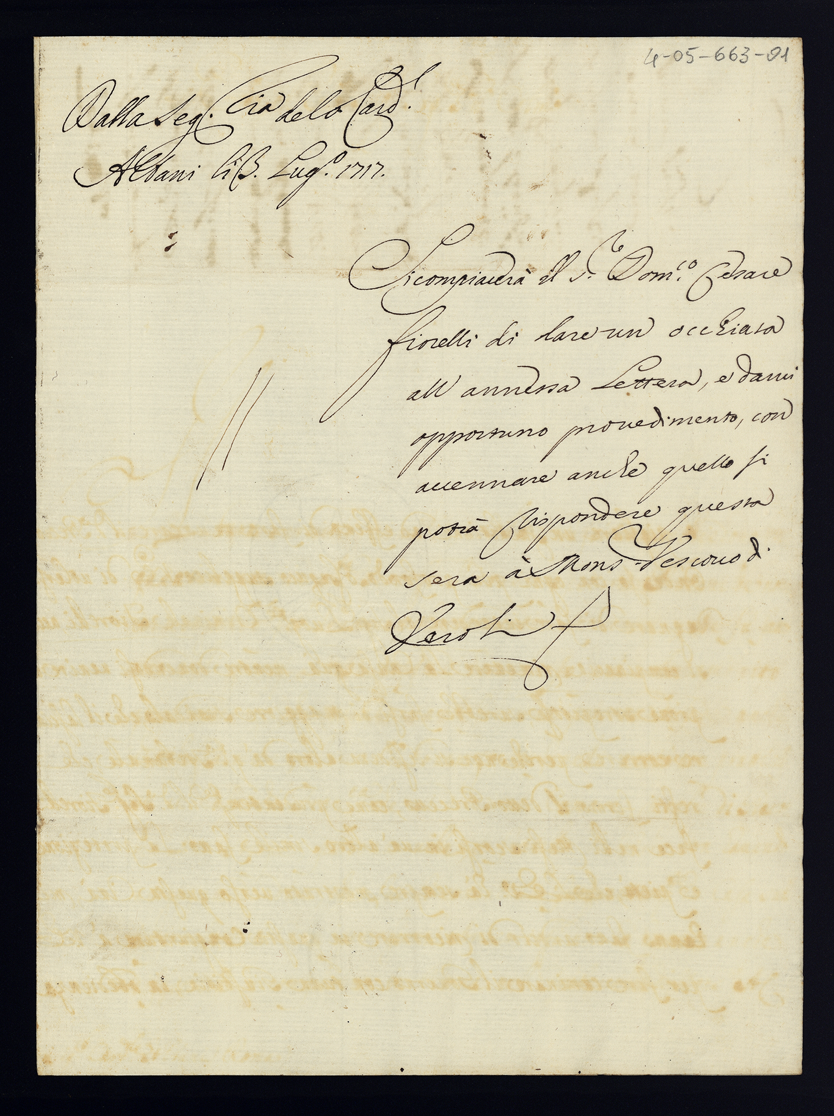 4-05-663-01
Dalla Seg.ria del Card.l
Albani li 3. Lug.o 1717.
Si compiacerà il S.re Dom.co Cesare
Fiorelli di dare un occhiata
all'annessa Lettera, e darvi
opportuno provedimento, con
accennare anche quello si
potrà rispondere questa
sera à Mons. Vescovo di
Veroli